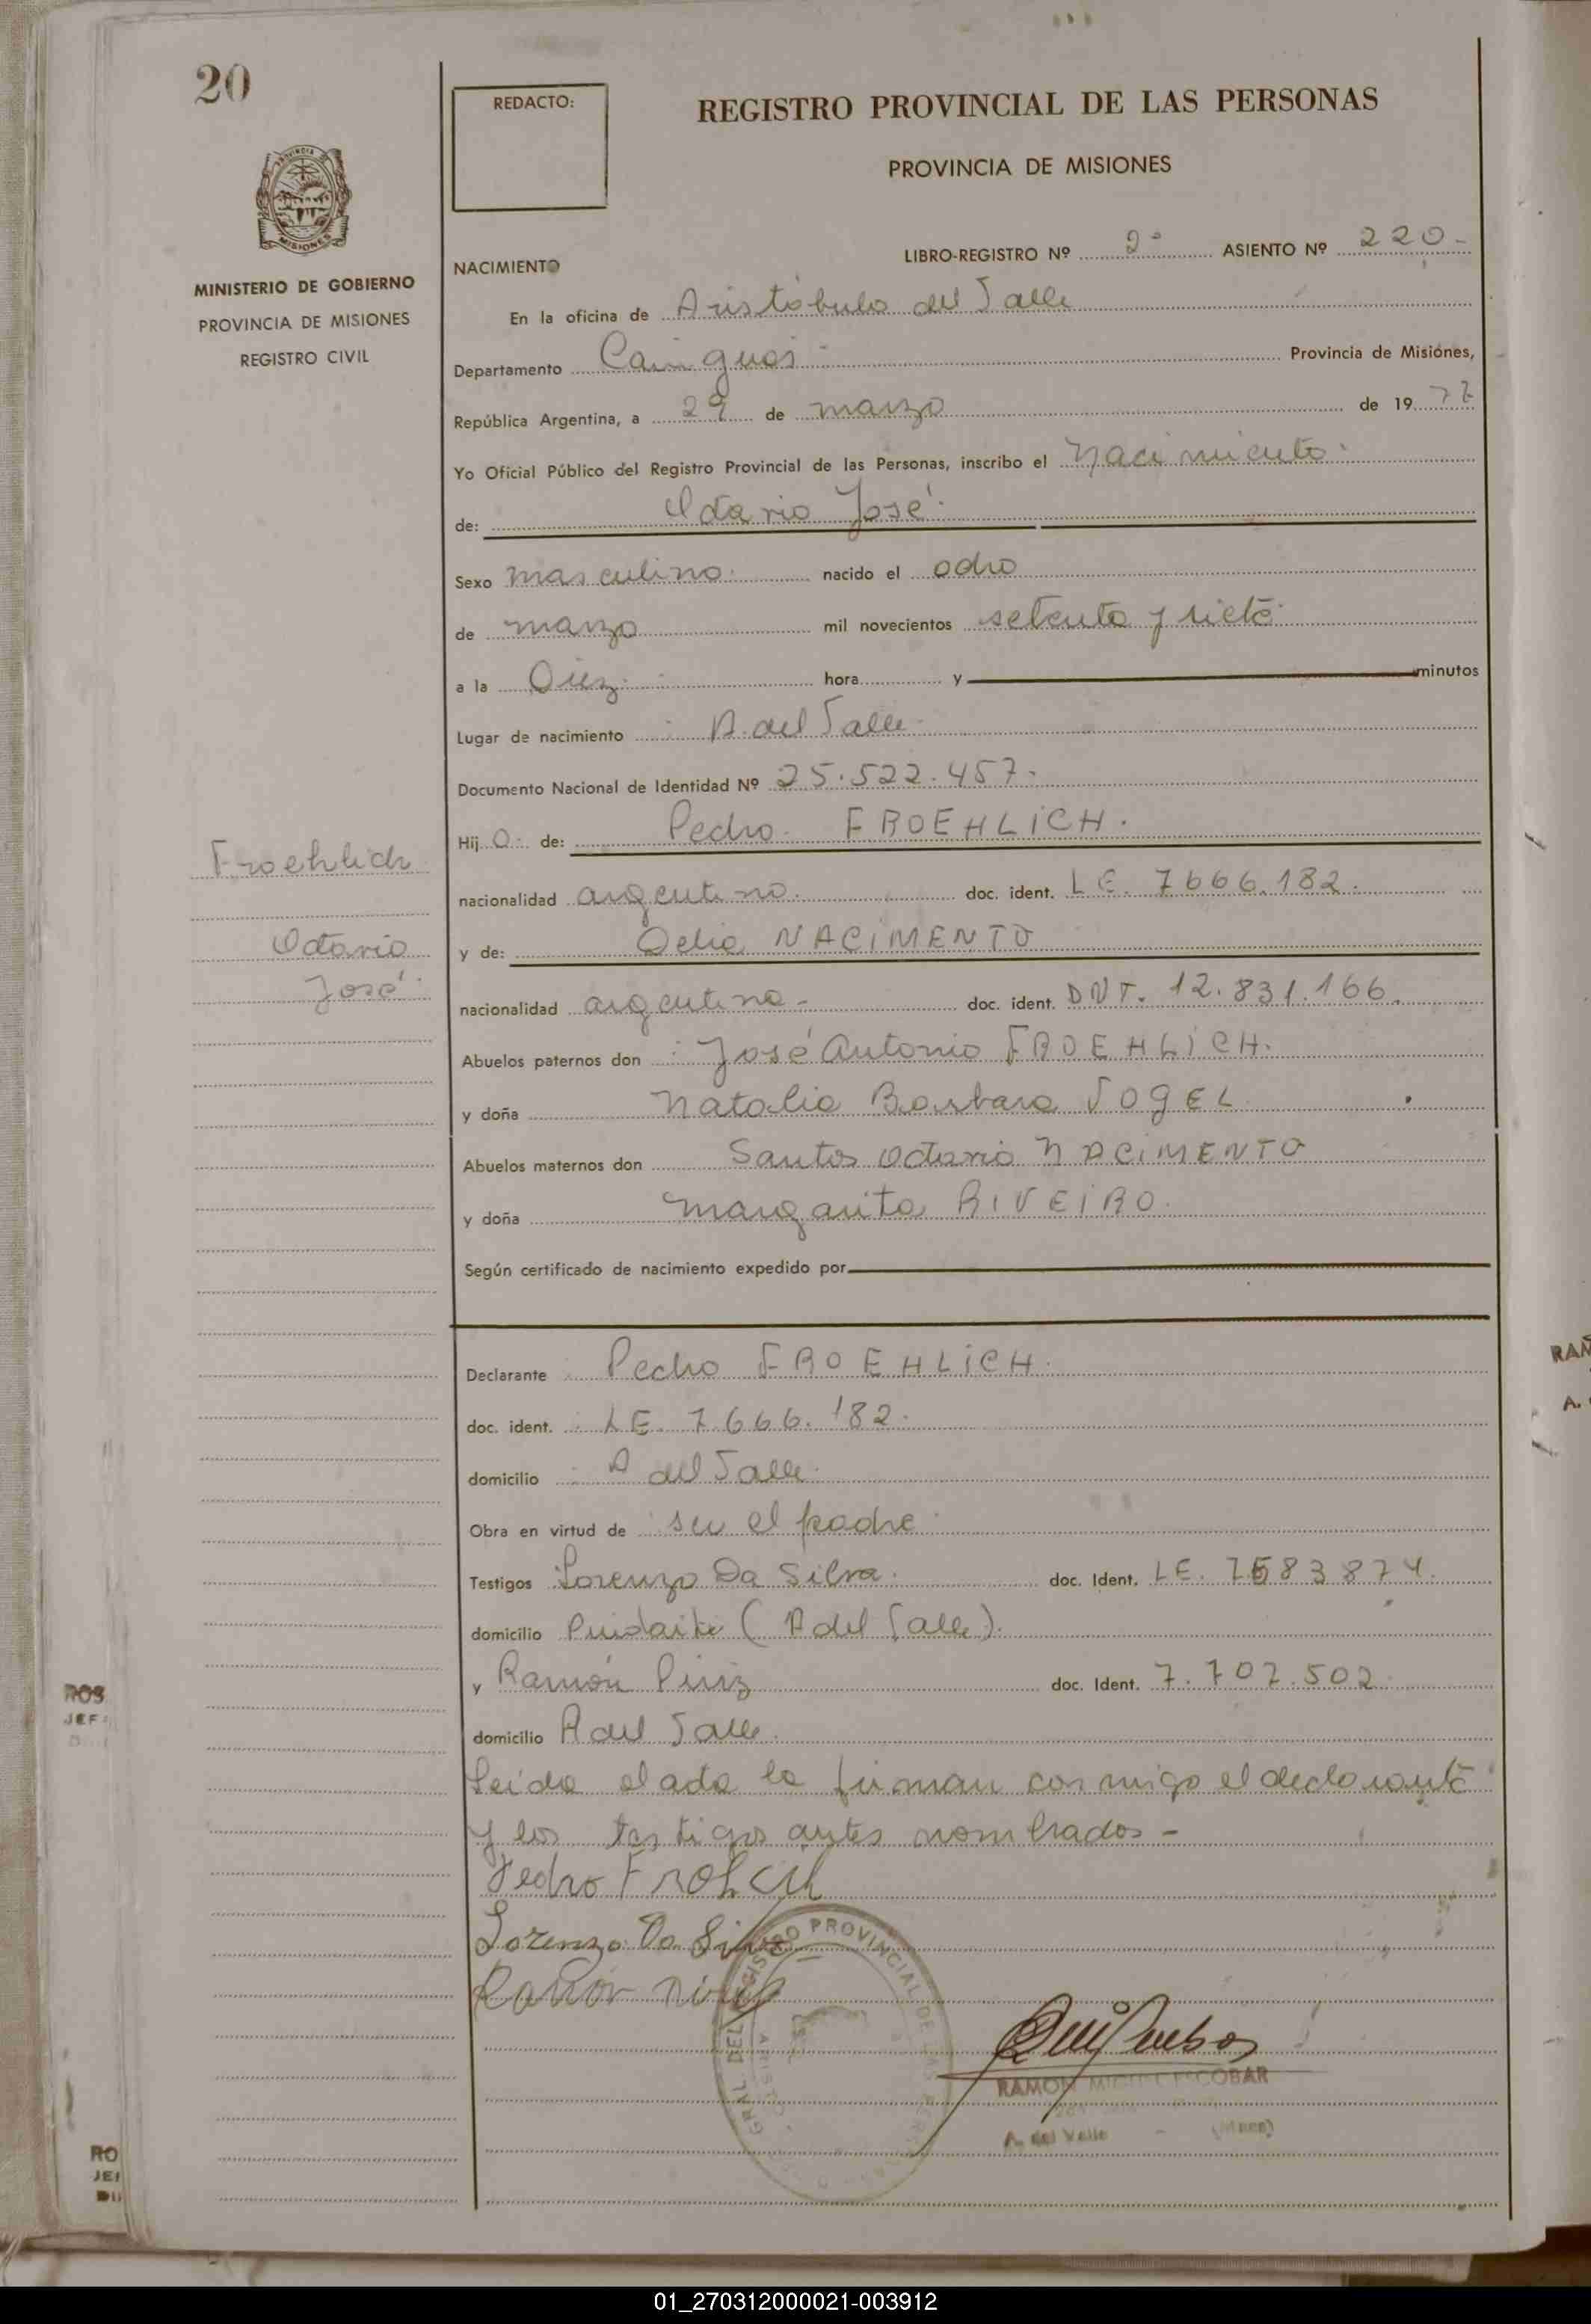 20
REDACTO:
REGISTRO PROVINCIAL DE LAS PERSONAS
PROVINCIA DE MISIONES
PROVINCIA DE
MISIONES
MINISTERIO DE GOBIERNO
PROVINCIA DE MISIONES
REGISTRO CIVIL
NACIMIENTO
LIBRO-REGISTRO Nº 2º ASIENTO Nº 220-
En la oficina de Aristóbulo del Valle
Departamento Cainguás Provincia de Misiones,
República Argentina, a 29 de marzo de 19 77
Yo Oficial Público del Registro Provincial de las Personas, inscribo el Nacimiento.
de: Octavio José.
Sexo masculino. nacido el ocho
de marzo mil novecientos setenta y siete
a la Diez hora y minutos
Lugar de nacimiento A. del Valle
Documento Nacional de Identidad Nº 25.522.457.
Hij o de: Pedro FROEHLICH.
Froehlich
nacionalidad argentino. doc. ident. LE. 7666.182.
Octavio
y de: Delia NACIMENTO
José
nacionalidad argentina- doc. ident. DNT. 12.831.166.
Abuelos paternos don José Antonio FROEHLICH.
y doña Natalia Barbara VOGEL
Abuelos maternos don Santos Octavio NACIMENTO
y doña Margarita RIVEIRO.
Según certificado de nacimiento expedido por
Declarante Pedro FROEHLICH.
doc. ident. LE. 7.666.182.
domicilio A del Valle.
Obra en virtud de ser el padre
Testigos Lorenzo Da Silva. doc. Ident. LE. 7583874.
domicilio (A del Valle).
y Ramón Piriz doc. Ident. 7.707.502
domicilio A del Valle.
Leida el acta la firman conmigo el declarante
y los testigos antes nombrados-
Pedro
Lorenzo Da Silva
Ramón
REGISTRO PROVINCIAL DE LAS
RAMON MIGUEL ESCOBAR
A. del Valle (Mnes)
ROS
JEF
RO
JEF
RAM
A.
01_270312000021-003912